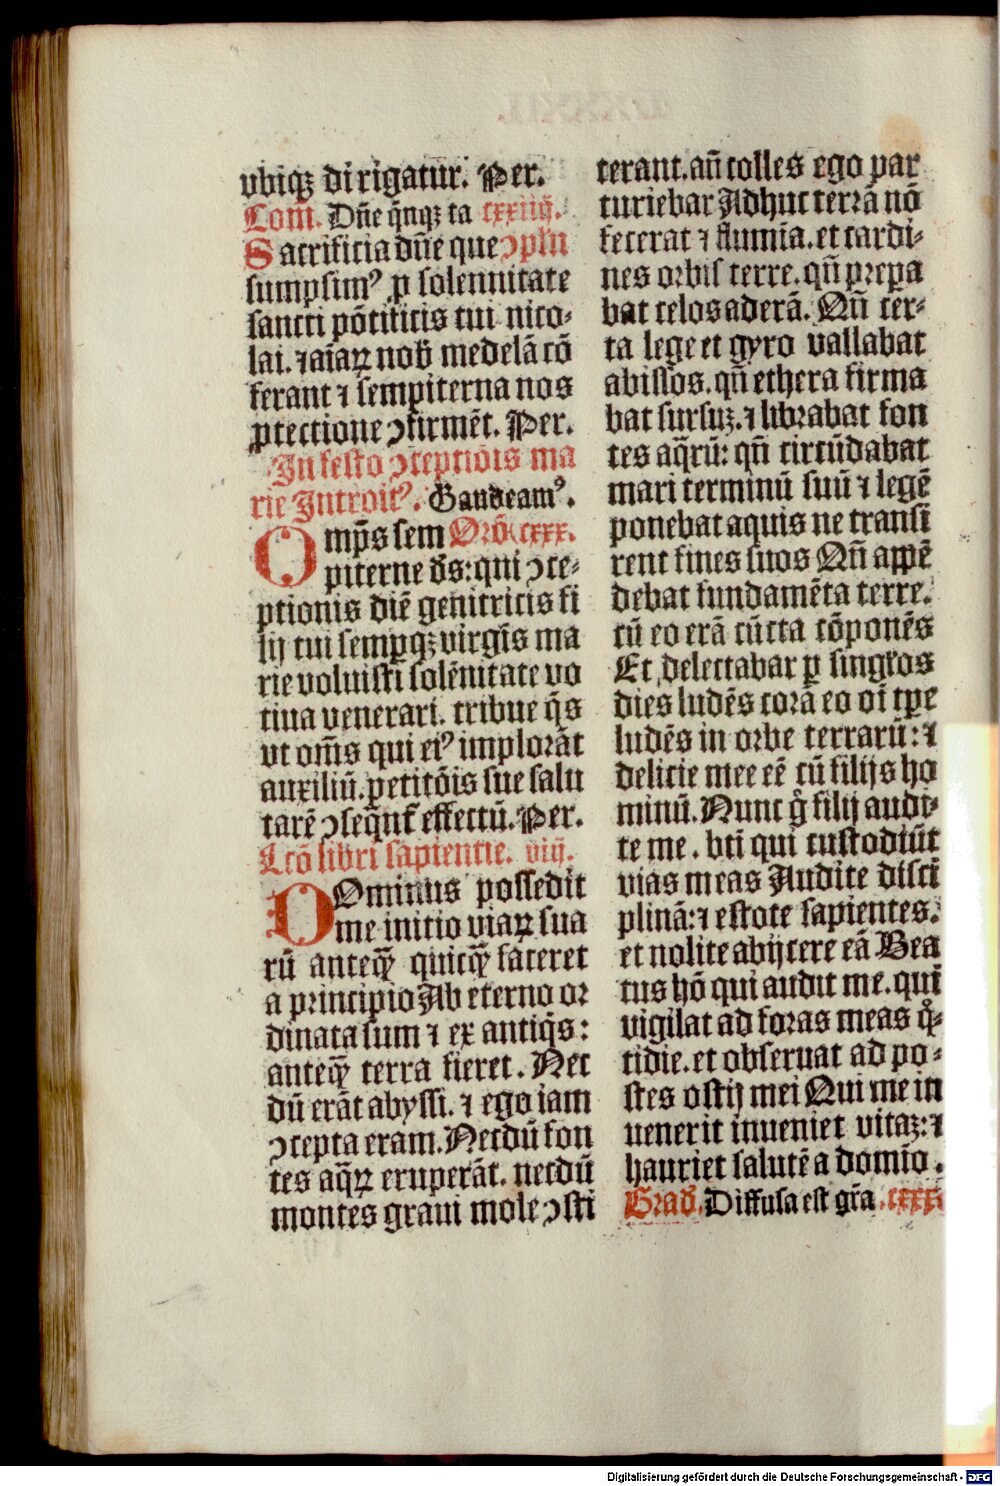 vbiqꝫ dirigatur. Per.
Com̄. Dn̄e q̄nqꝫ ta cxxiiij.
Sacrificia dn̄e que ↄp̄ln
sumpsimꝰ ꝓ solennitate
sancti pōtificis tui nico-
lai. ⁊ aīaꝝ nob̄ medelā cō
ferant ⁊ sempiterna nos
ꝓtectione ↄfirmēt. Per.
In festo ↄceptiōis ma
rie Introitꝰ. Gaudeamꝰ.
Omp̄s sem Orō cxxx.
piterne d̄s: qui ↄce-
ptionis diē genitricis fi
lij tui sempqꝫ virgīs ma
rie voluisti solēnitate vo
tiua venerari. tribue q̄s
vt om̄s qui eiꝰ implorāt
auxiliū. petitōis sue salu
tarē ↄseq̄nt̄ effectū. Per.
Lcō libri sapientie. viij.
Dominus possedit
me initio viaꝝ sua
rū anteqꝫ quicqꝫ faceret
a principio Ab eterno or
dinata sum ⁊ ex antiq̄s:
anteqꝫ terra fieret. Nec
dū erāt abyssi. ⁊ ego iam
ↄcepta eram. Necdū fon
tes aq̄ꝝ eruperāt. necdū
montes graui mole ↄsti
terant. an̄ colles ego par
turiebar Adhuc terrā nō
fecerat ⁊ flumīa. et cardi-
nes orbis terre. qn̄ prepa
bat celos aderā. Qn̄ cer-
ta lege et gyro vallabat
abissos. qn̄ ethera firma
bat sursuꝫ. ⁊ librabat fon
tes aq̄rū: qn̄ circūdabat
mari terminū suū ⁊ legē
ponebat aquis ne transi
rent fines suos Qn̄ appē
debat fundamēta terre.
cū eo erā cūcta cōponēs
Et delectabar ꝑ singlos
dies ludēs corā eo oī tp̄e
ludēs in orbe terrarū: ⁊
delicie mee eē cū filijs ho
minū. Nunc g̊ filij audi-
te me. bti qui custodiūt
vias meas Audite disci
plinā: ⁊ estote sapientes.
et nolite abijcere eā Bea
tus hō qui audit me. qui
vigilat ad fores meas q̊-
tidie. et obseruat ad po-
stes ostij mei Qui me in
uenerit inueniet vitaꝫ: ⁊
hauriet salutē a domīo.
Grad̄. Diffusa est gr̄a. cxxx.
Digitalisierung gefördert durch die Deutsche Forschungsgemeinschaft - DFG